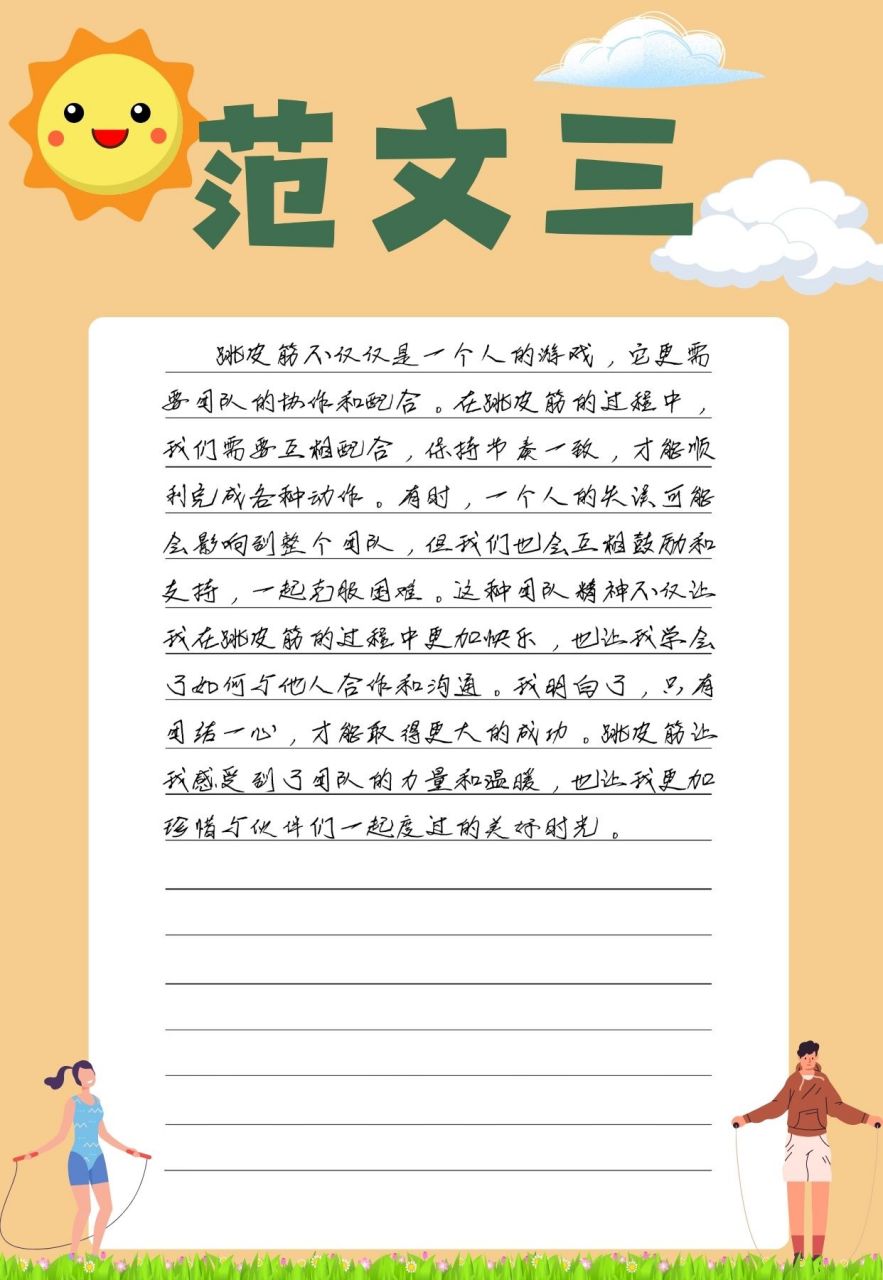 范文三
跳皮筋不仅仅是一个人的游戏，它更需
要团队的协作和配合。在跳皮筋的过程中，
我们需要互相配合，保持节奏一致，才能顺
利完成各种动作。有时，一个人的失误可能
会影响到整个团队，但我们也会互相鼓励和
支持，一起克服困难。这种团队精神不仅让
我在跳皮筋的过程中更加快乐，也让我学会
了如何与他人合作和沟通。我明白了，只有
团结一心，才能取得更大的成功。跳皮筋让
我感受到了团队的力量和温暖，也让我更加
珍惜与伙伴们一起度过的美好时光。